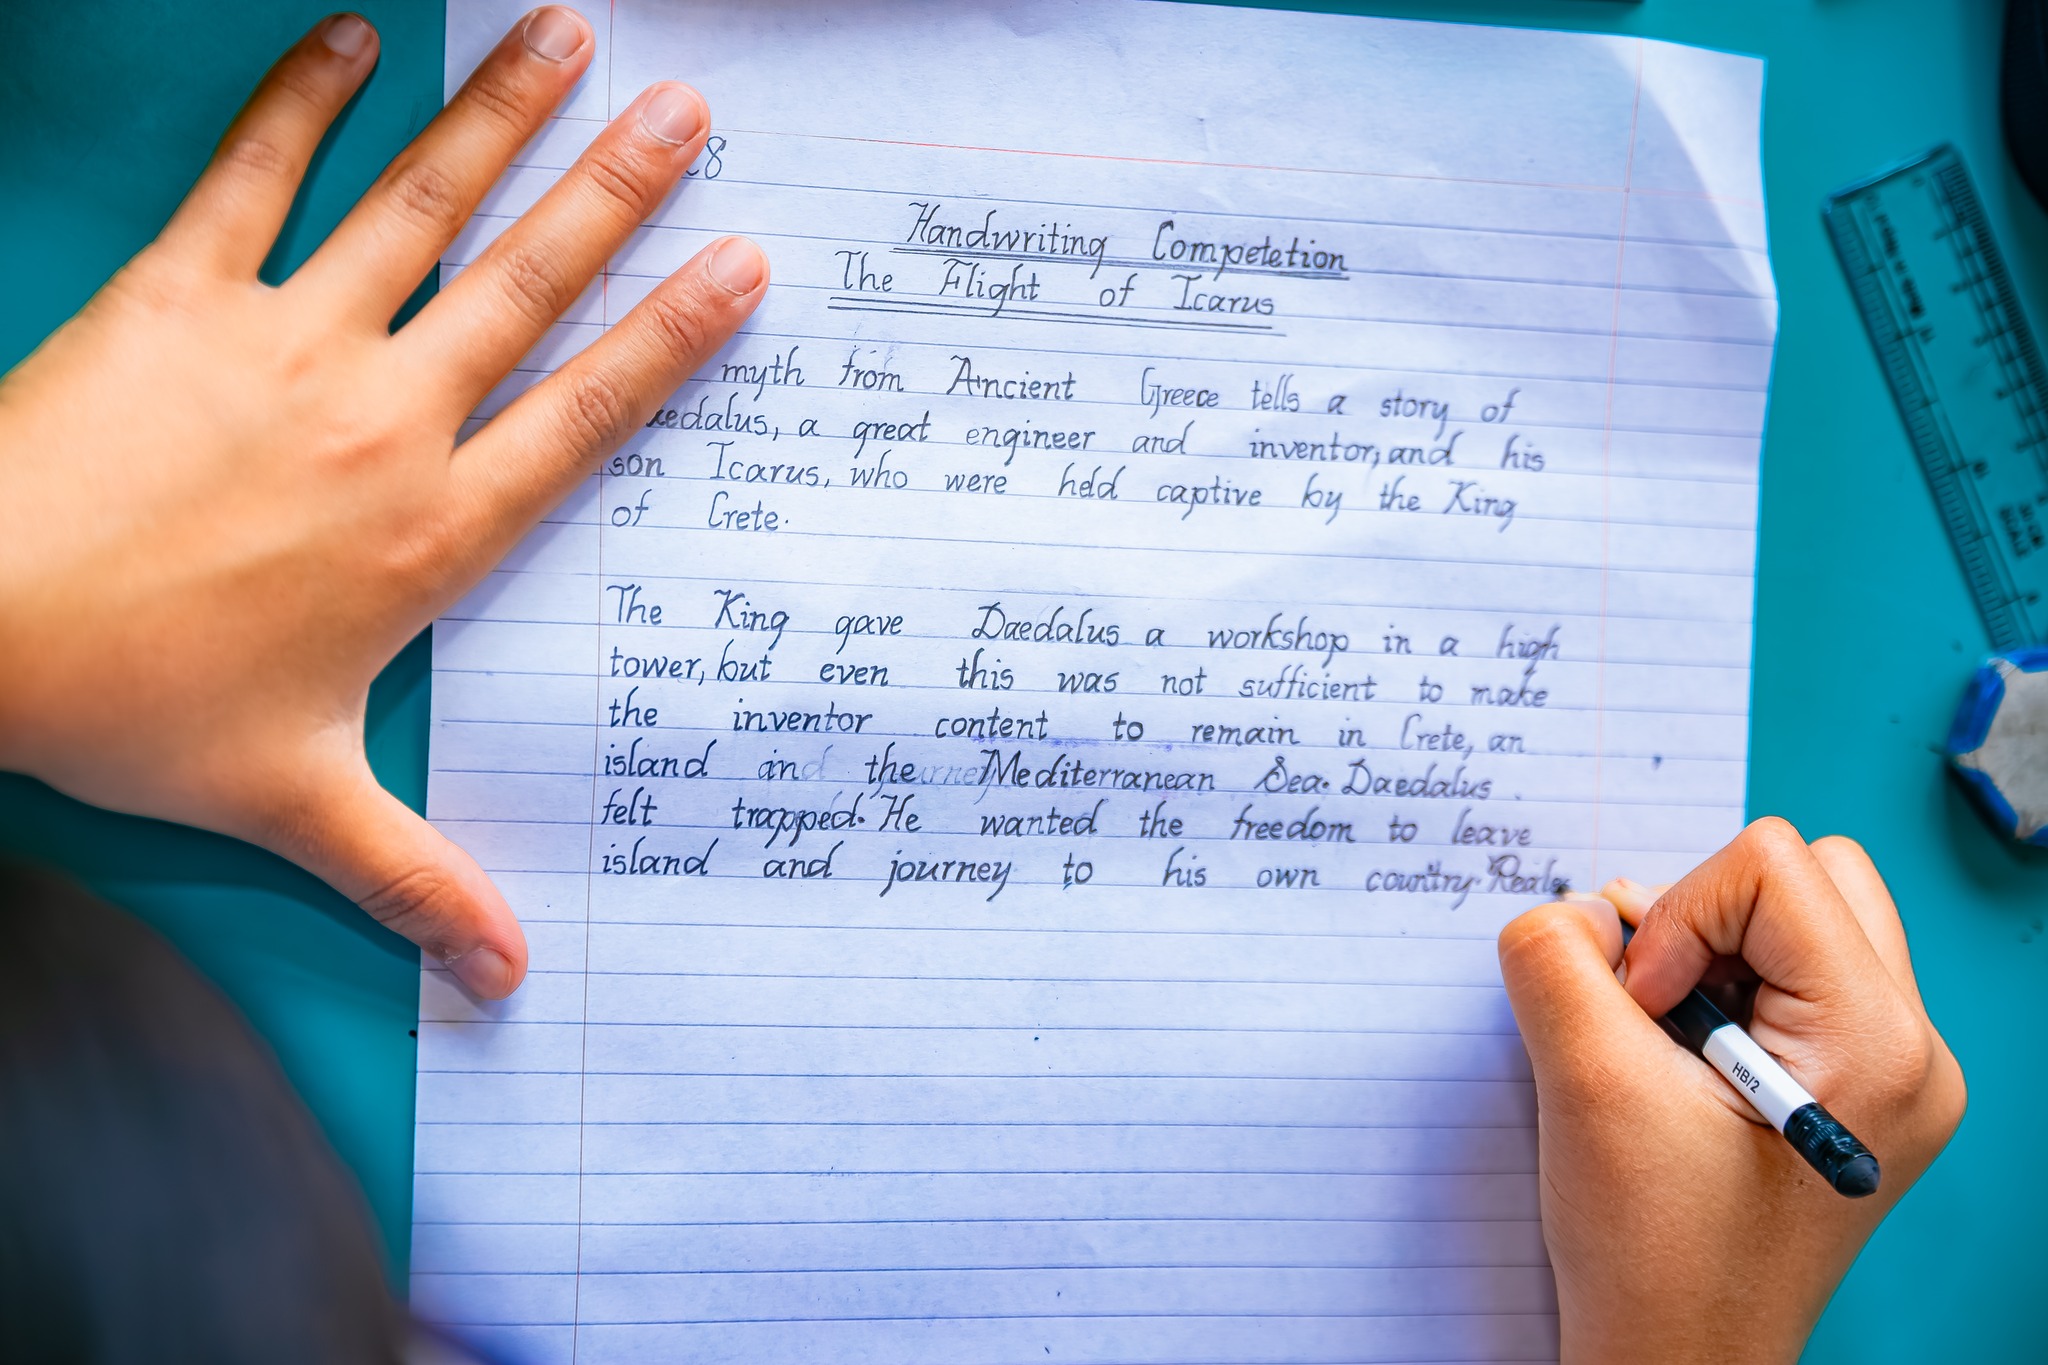 8
Handwriting Competetion
The Flight of Icarus
myth from Ancient Greece tells a story of
aedalus, a great engineer and inventor, and his
son Icarus, who were held captive by the King
of Crete.
The King gave Daedalus a workshop in a high
tower, but even this was not sufficient to make
the inventor content to remain in Crete, an
island and the Mediterranean Sea. Daedalus
felt trapped. He wanted the freedom to leave
island and journey to his own country.
HB/2